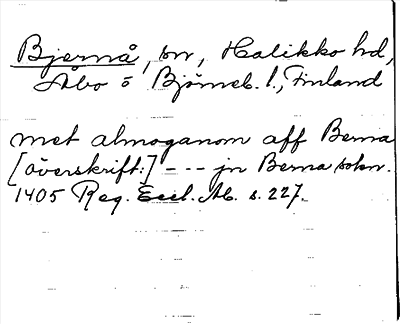 Bjernå, sn, Halikko hd,
Åbo o Björneb. l., Finland
met almoganom aff Berna
[överskrift:] - - - jn Berna sokn.
1405 Reg. Eccl. Ab. s. 227.